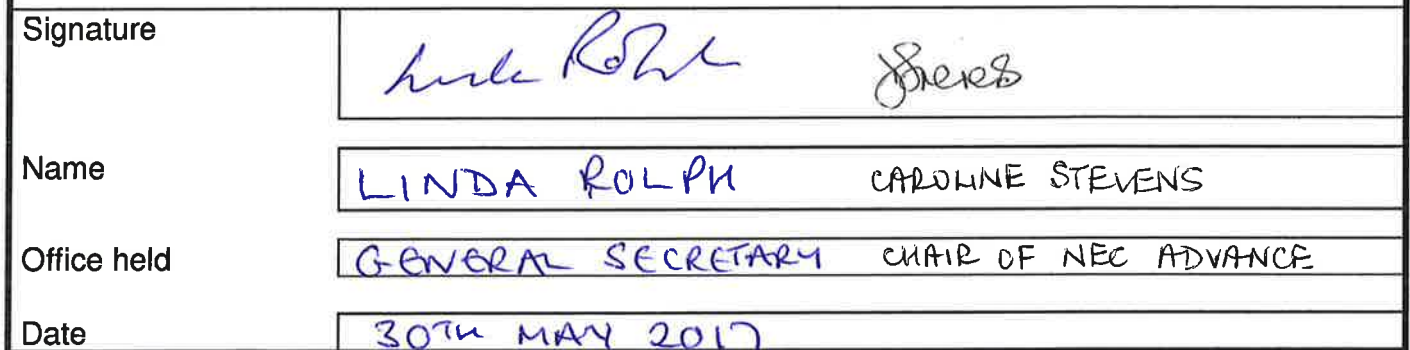 Signature Linda Rolph
Name LINDA ROLPH CAROLINE STEVENS
Office held GENERAL SECRETARY CHAIR OF NEC ADVANCE
Date 30TH MAY 2017